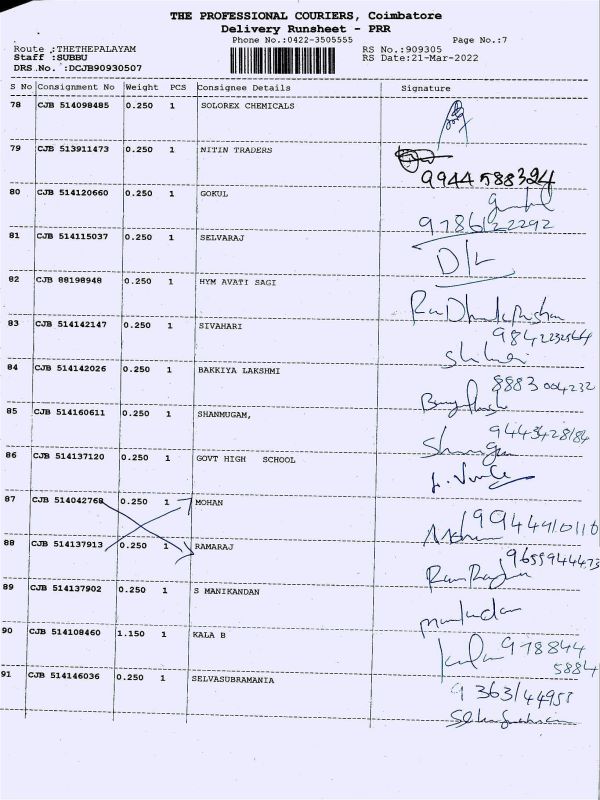 THE PROFESSIONAL COURIERS, Coimbatore
Delivery Runsheet - PRR
Phone No.:0422-3505555
Page No.:7
Route :THETHEPALAYAM
RS No.:909305
Staff :SUBBU
RS Date:21-Mar-2022
DRS.No. :DCJB90930507
S No Consignment No Weight PCS Consignee Details Signature
78 CJB 514098485 0.250 1 SOLOREX CHEMICALS
79 CJB 513911473 0.250 1 NITIN TRADERS
9944588324
80 CJB 514120660 0.250 1 GOKUL
9786122292
81 CJB 514115037 0.250 1 SELVARAJ
D/L
82 CJB 88198948 0.250 1 HYM AVATI SAGI
83 CJB 514142147 0.250 1 SIVAHARI
84 CJB 514142026 0.250 1 BAKKIYA LAKSHMI
8883004232
85 CJB 514160611 0.250 1 SHANMUGAM,
86 CJB 514137120 0.250 1 GOVT HIGH SCHOOL
87 CJB 514042768 0.250 1 MOHAN
88 CJB 514137913 0.250 1 RAMARAJ
89 CJB 514137902 0.250 1 S MANIKANDAN
90 CJB 514108460 1.150 1 KALA B
978844
5884
91 CJB 514146036 0.250 1 SELVASUBRAMANIA